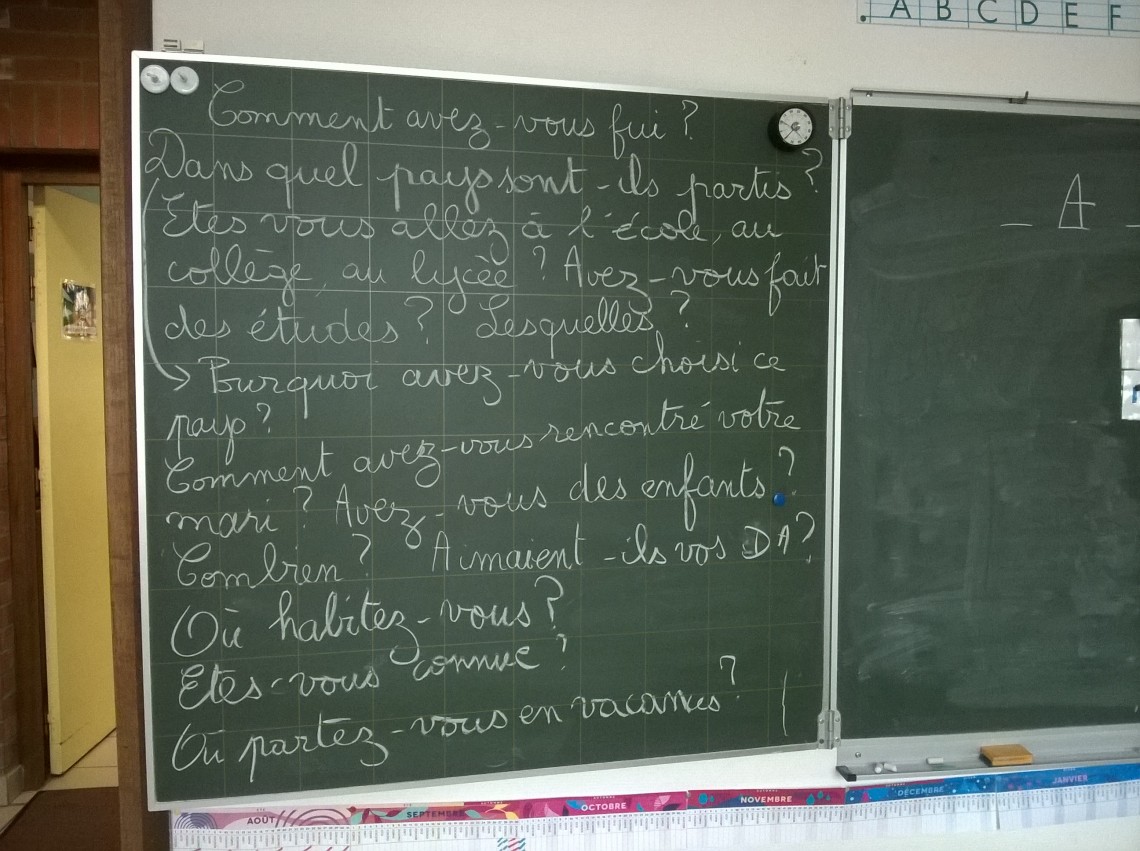 A B C D E F
Comment avez-vous fui ?
Dans quel pays sont-ils partis ?
Etes vous allez à l'école, au
collège, au lycée ? Avez-vous fait
des études ? Lesquelles ?
→ Pourquoi avez-vous choisi ce
pays ?
Comment avez-vous rencontré votre
mari ? Avez-vous des enfants ?
Combien ? Aimaient-ils vos DA ?
Où habitez-vous ?
Etes-vous connue ?
Où partez-vous en vacances ?
_ A _
AOÛT SEPTEMBRE OCTOBRE NOVEMBRE DÉCEMBRE JANVIER